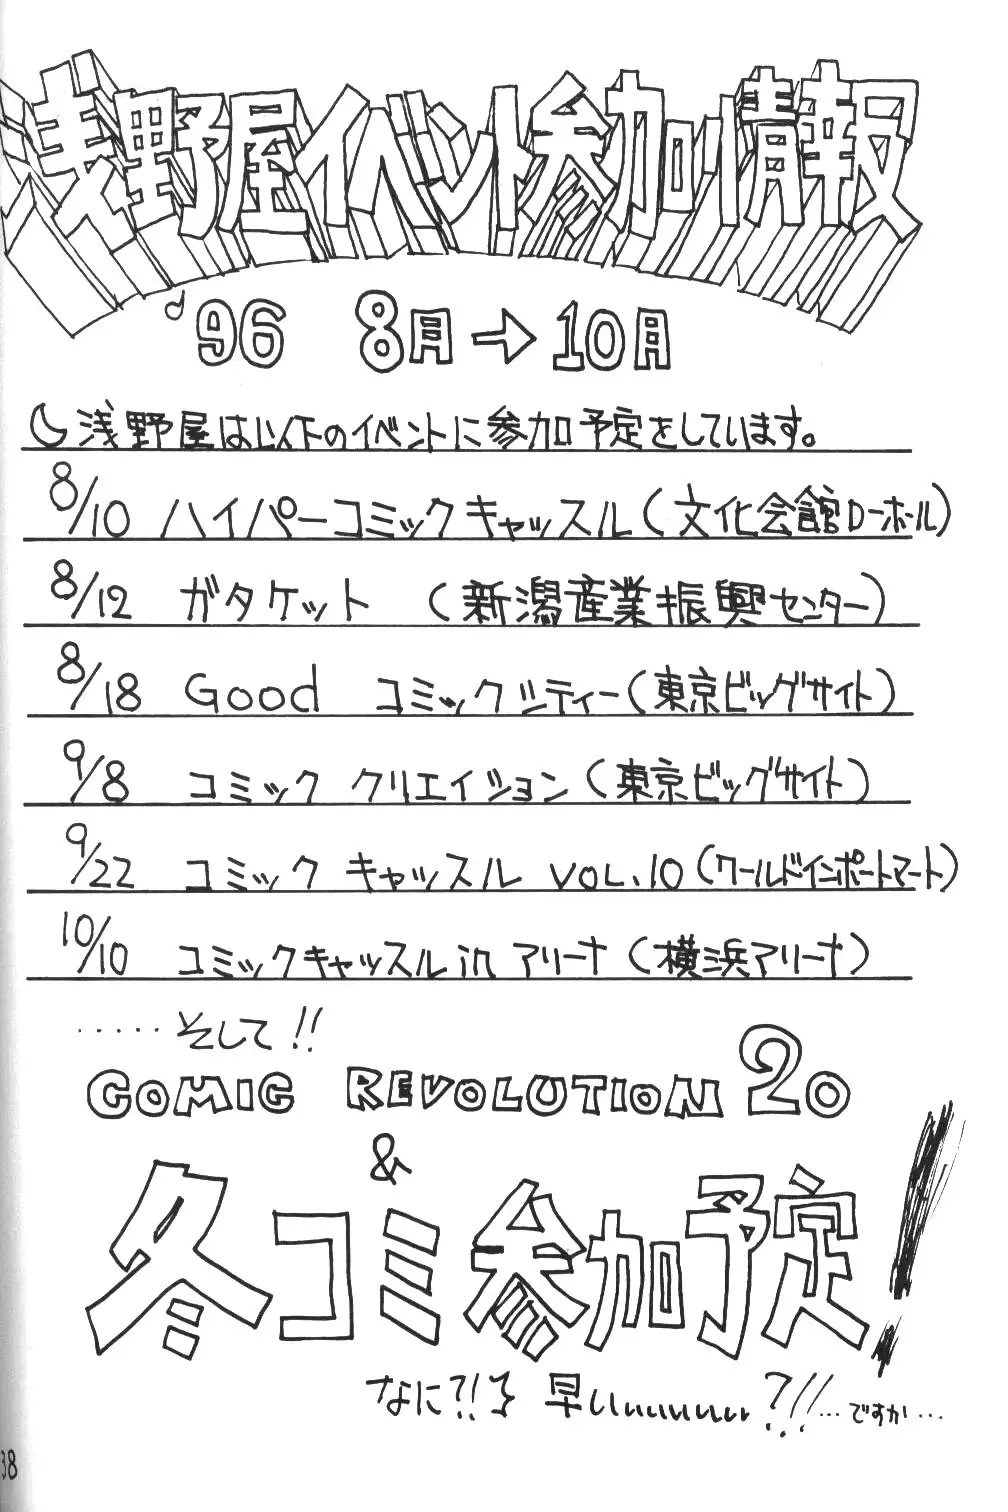 浅野屋イベント参加情報
'96 8月→10月
浅野屋は以下のイベントに参加予定をしています。
8/10 ハイパーコミックキャッスル(文化会館Dーホール)
8/12 ガタケット (新潟産業振興センター)
8/18 Good コミックシティー(東京ビッグサイト)
9/8 コミック クリエイション(東京ビッグサイト)
9/22 コミック キャッスル VOL.10(ワールドインポートマート)
10/10 コミックキャッスル in アリーナ(横浜アリーナ)
・・・・・そして!!
COMIC REVOLUTION 20
&
冬コミ参加予定!
なに?! 早いぃぃぃぃぃぃ?!!…ですか…
38